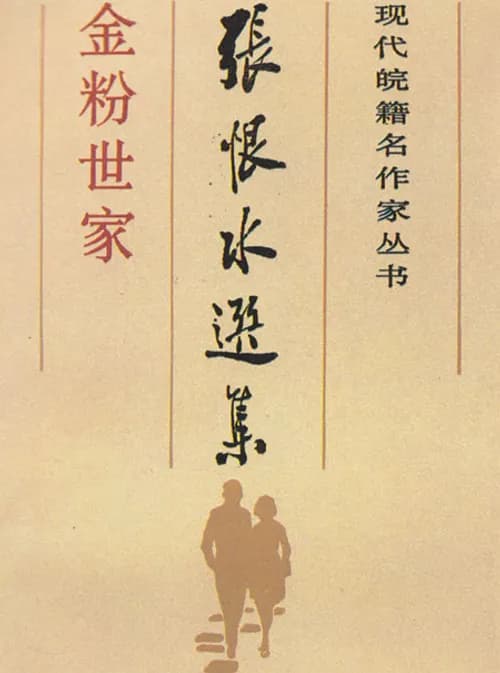 现代皖籍名作家丛书
張恨水選集
金粉世家